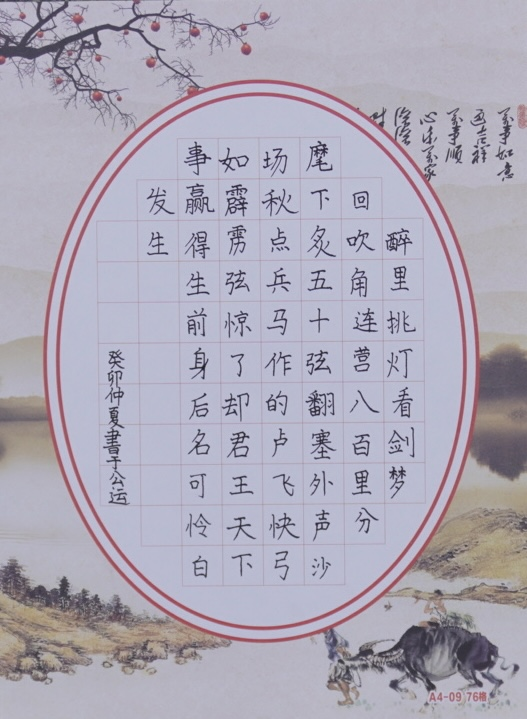 醉里挑灯看剑梦
回吹角连营八百里分
麾下炙五十弦翻塞外声沙
场秋点兵马作的卢飞快弓
如霹雳弦惊了却君王天下
事赢得生前身后名可怜白
发生
癸卯仲夏書于公运
A4-09 76格